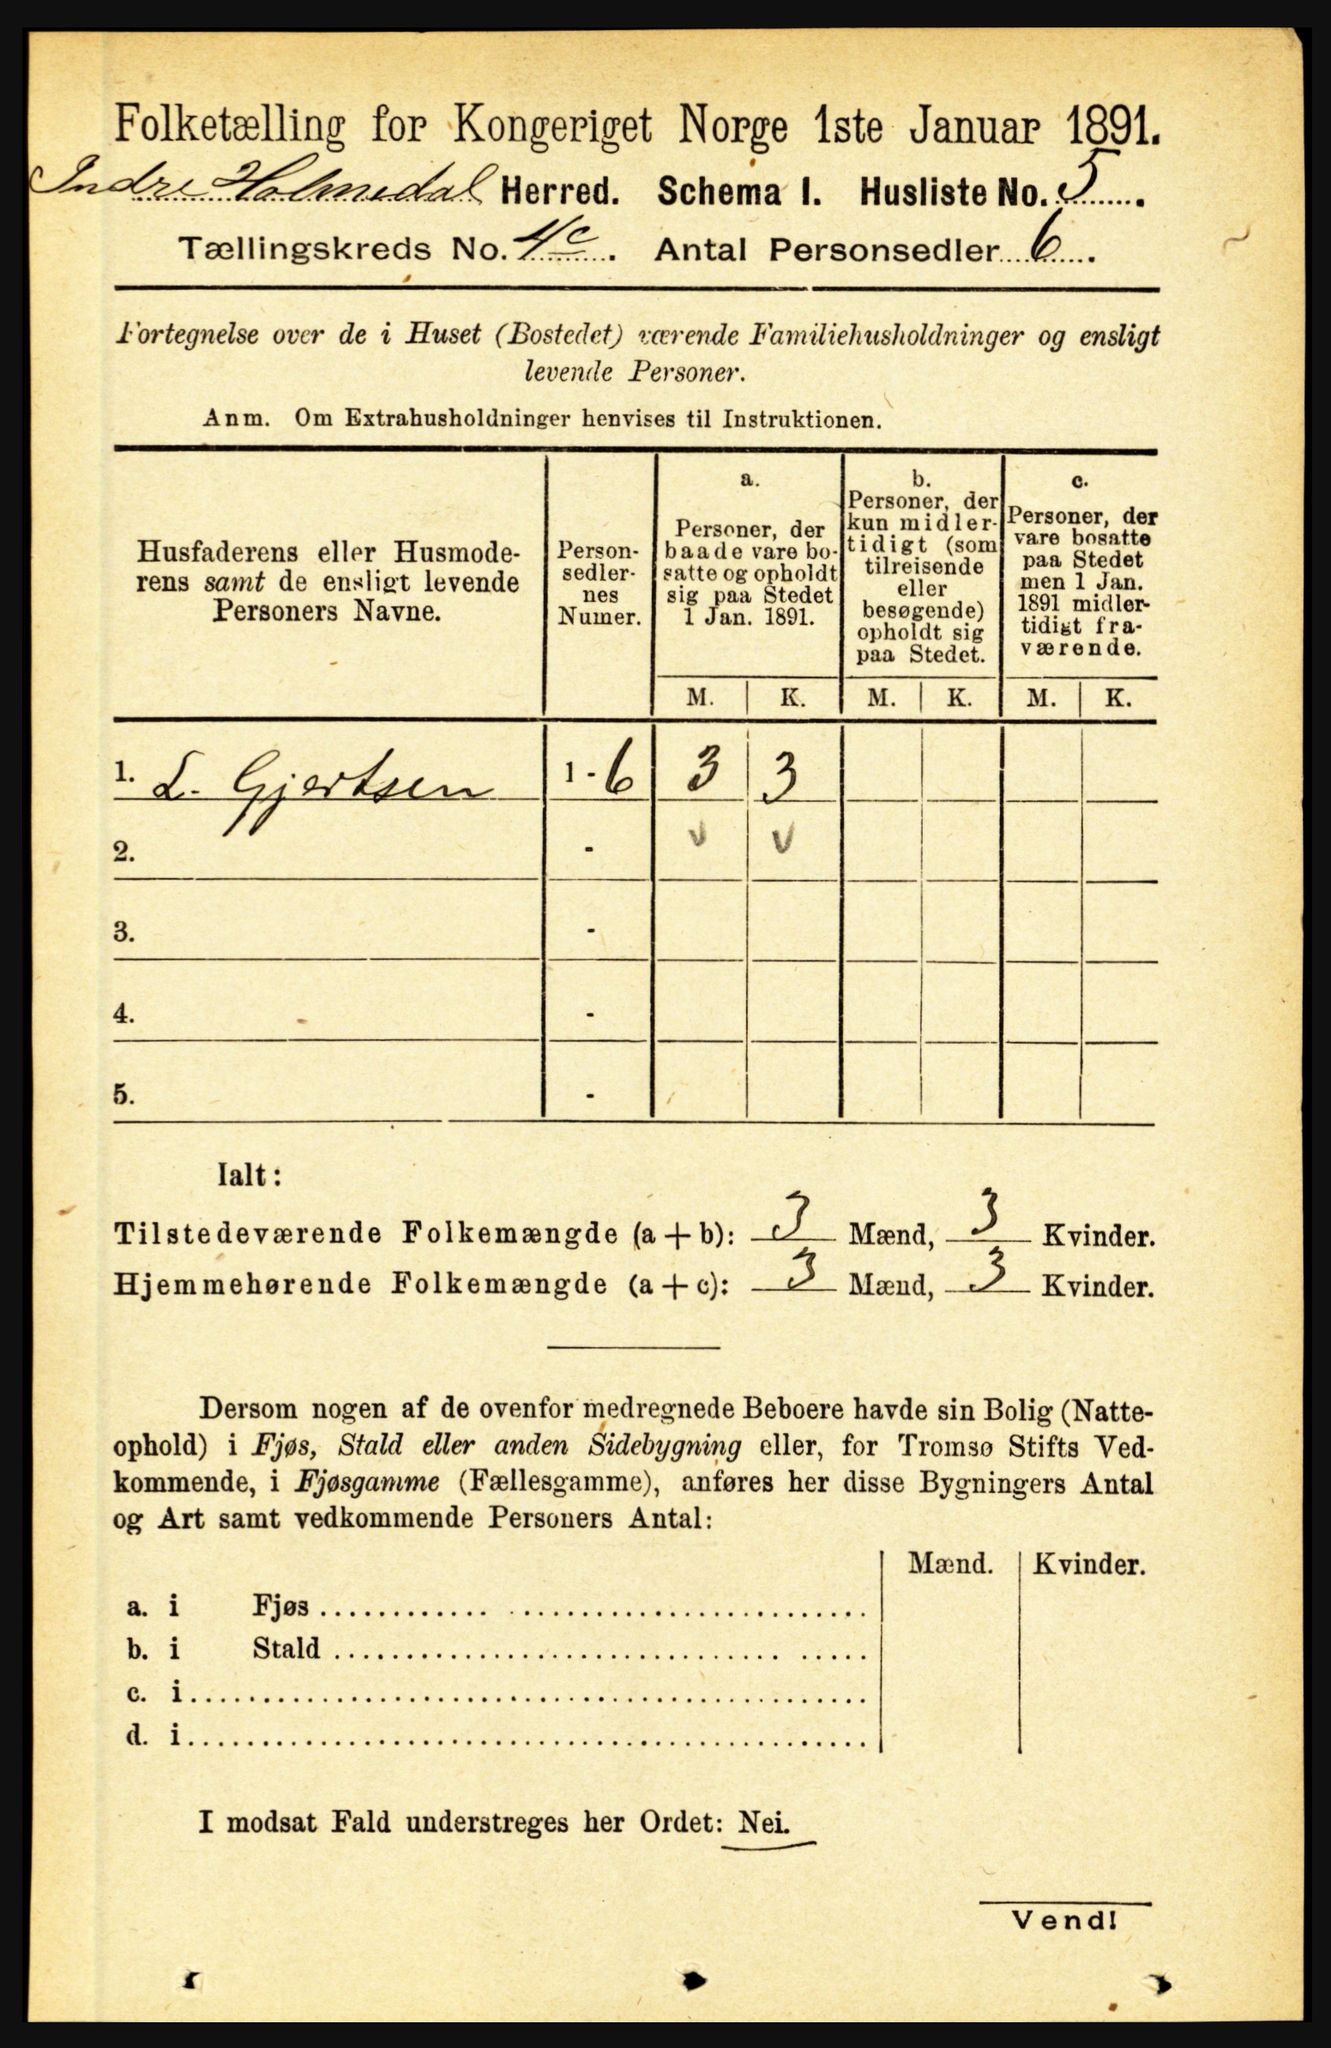 Folketælling for Kongeriget Norge 1ste Januar 1891.
Indre Holmedal Herred. Schema I. Husliste No. 5.
Tællingskreds No. 4c. Antal Personsedler 6.
Fortegnelse over de i Huset (Bostedet) værende Familiehusholdninger og ensligt
levende Personer.
Anm. Om Extrahusholdninger henvises til Instruktionen.
Husfaderens eller Husmode-
rens samt de ensligt levende
Personers Navne.
Person-
sedler-
nes
Numer.
a.
Personer, der
baade vare bo-
satte og opholdt
sig paa Stedet
1 Jan. 1891.
b.
Personer, der
kun midler-
tidigt (som
tilreisende
eller
besøgende)
opholdt sig
paa Stedet.
c.
Personer, der
vare bosatte
paa Stedet
men 1 Jan.
1891 midler-
tidigt fra-
værende.
M. K. M. K. M. K.
1. L. Gjertsen 1 - 6 3 3
2. - v v
3. -
4. -
5. -
Ialt:
Tilstedeværende Folkemængde (a + b): 3 Mænd, 3 Kvinder.
Hjemmehørende Folkemængde (a + c): 3 Mænd, 3 Kvinder.
Dersom nogen af de ovenfor medregnede Beboere havde sin Bolig (Natte-
ophold) i Fjøs, Stald eller anden Sidebygning eller, for Tromsø Stifts Ved-
kommende, i Fjøsgamme (Fællesgamme), anføres her disse Bygningers Antal
og Art samt vedkommende Personers Antal:
Mænd. Kvinder.
a. i Fjøs
b. i Stald
c. i
d. i
I modsat Fald understreges her Ordet: Nei.
Vend!